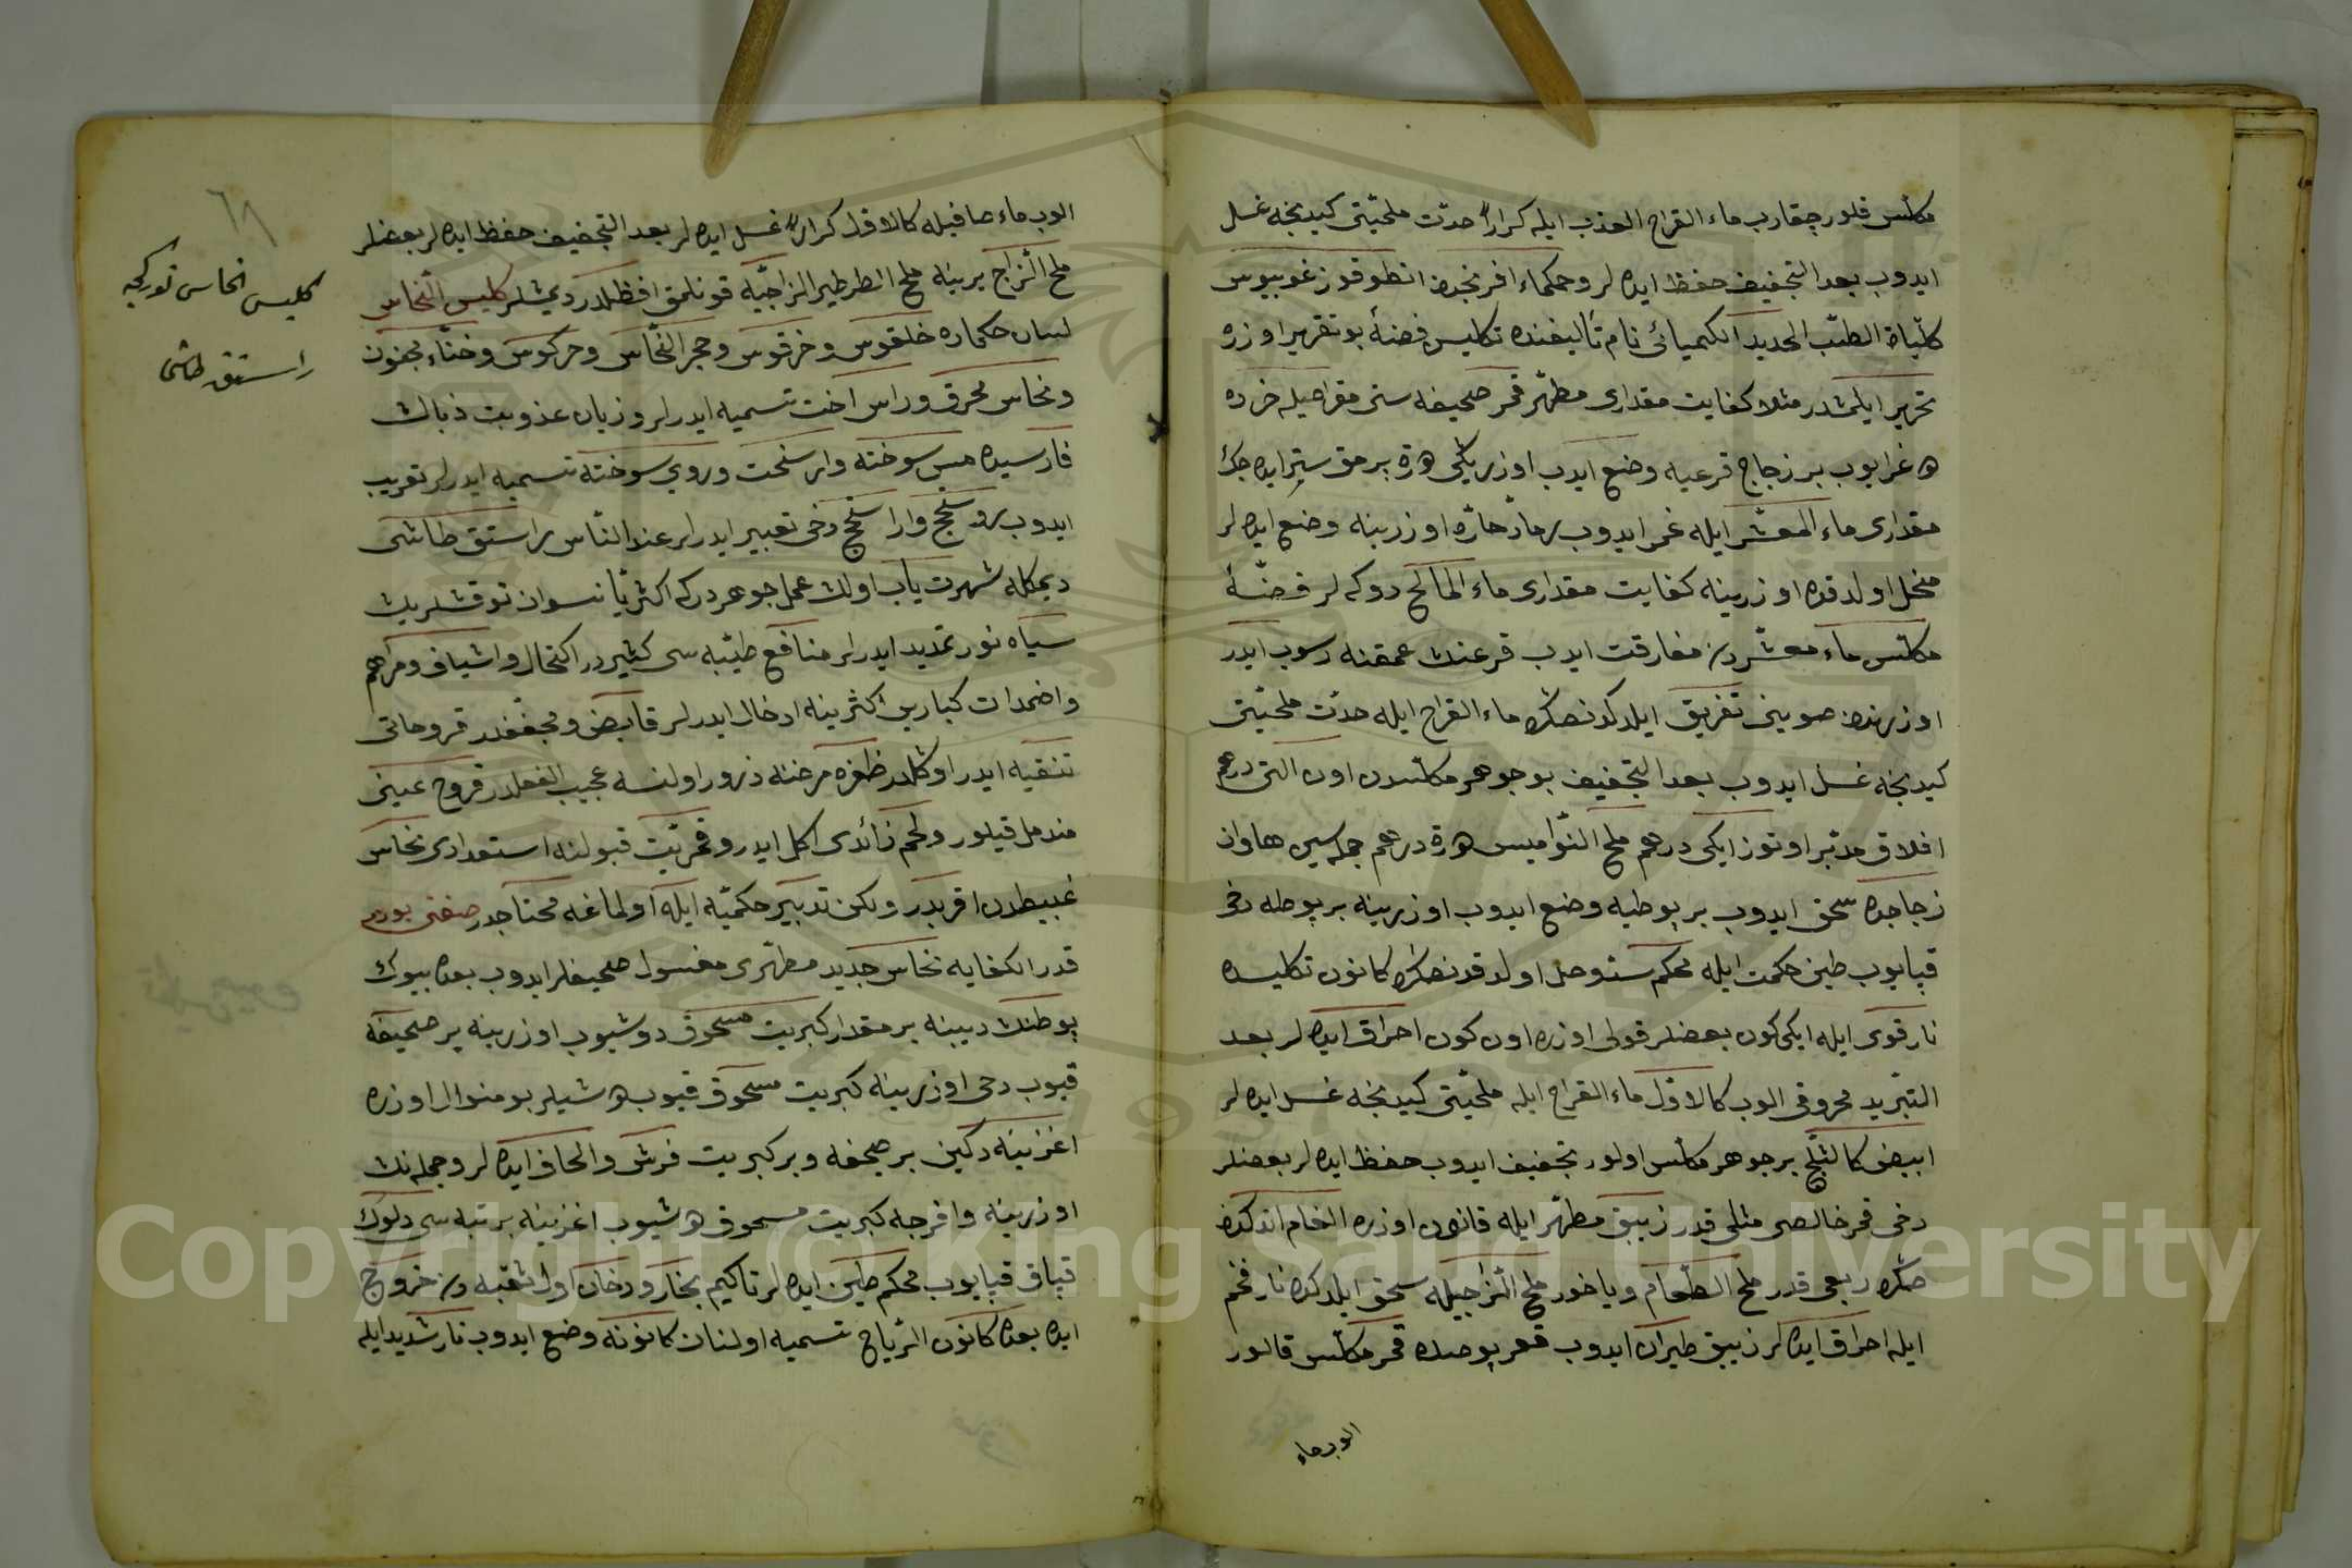 مكلّس قلور چقارب ماء القراح العذب ايله كراراً حدّت ملحيّتى كيدنجه غسل
ايدوب بعد التجفيف حفظ ايده لر وحكماء افرنجدن انطوقوز غوبيوس
كلّيات الطبّ الجديد الكيميائى نام تأليفنده تكليس فضهٔ بو تقرير اوزره
تحرير ايلمشدر مثلا كفايت مقدارى مطهّر قمر صحيفه سنى مقراضيله خرده
بر زجاج قرعيه وضع ايدوب اوزرينى بر مق ستر ايده جك
مقدارى ماء المعشّر ايله غمر ايدوب رماد حارّه اوزرينه وضع ايده لر
منحل اولدقده اوزرينه كفايت مقدارى ماء المالح دوكه لر فضّهٔ
مكلّس ماء معشّردن مفارقت ايدب قرعنك عمقنه رسوب ايدر
اوزرندن صويينى تفريق ايلدكدنصكره ماء القراح ايله حدّت ملحيّتى
كيدنجه غسل ايدوب بعد التجفيف بو جوهر مكلّسدن اون التى درهم
افلاق مدبّر اوتوز ايكى درهم ملح النّواميس درهم جمله سين هاوان
زجاجده سحق ايدوب بر بوطيه وضع ايدوب اوزرينه بر بوطه دخى
قپايوب طين حكمت ايله محكم سد وصل اولدقدنصكره كانون تكليسده
نار قوى ايله ايكى كون بعضلر قولى اوزره اون كون احراق ايده لر بعد
التبريد محروقى الوب كالاوّل ماء القراح ايله ملحيّتى كيدنجه غسل ايده لر
ابيض كالثلج بر جوهر مكلّس اولور تجفيف ايدوب حفظ ايده لر بعضلر
دخى قمر خالصى مثلى قدر زيبق مطهّر ايله قانون اوزره الغام اندكدن
صكره ربعى قدر ملح الطعام وياخود ملح الزّجيله سحق ايلدكده نار فخم
ايله احراق ايده لر زيبق طيران ايدوب قعر بوطه ده قمر مكلّس قالور
الوب ماء
٦٨
الوب ماء صافيله كالاوّل كراراً غسل ايده لر بعد التجفيف حفظ ايده لر بعضلر
ملح الزّاج يرينه ملح الطرطير الزاجيّه قونلمق افظلدر ديمشلر كليس النّحاس
لسان حكماده خلقوس وخرقوس وحجر النّحاس وحركوس وحنّاء مجنون
ونحاس محرق وراس اخت تسميه ايدرلر وزبان عذوبت ذباك
فارسيده مس سوخته وار سخت وروى سوخته تسميه ايدرلر تعريب
ايدوب روسختج وارا سختج دخى تعبير ايدرلر عند النّاس راستق طاشى
ديمكله شهرت ياب اولك عمل جوهردركه اكثريّا نسوان توقشلرين
سياه نور تمديد ايدرلر منافع طبّيه سى كثيردر اكتحال واشياف ومراهم
واضمدات كبارين اكثرينه ادخال ايدرلر قابض ومجفّفدر قروحاتى
تنقيه ايدر اوكلدر ظفره مرضنه ذرور اولنسه عجيب الفعلدر قروح عينى
مندمل قيلور ولحم زائدى اكل ايدر وقمريّت قبولنه استعدادى نحاس
غبيطدن اقربدر ولكن تدبير حكميّه ايله اولماغه محتاجدر صفتى بودر
قدر الكفايه نحاس جديد مطهّرى مغسول صحيفلر ايدوب بعده بيوك
بوطنك ديبينه بر مقدار كبريت مسحوق دوشيوب اوزرينه بر صحيفه
قيوب دخى اوزرينه كبريت مسحوق قيوب بو منوال اوزره
اغزينه دكين بر صحيفه وبر كبريت فرش والحاف ايده لر وجمله نك
اوزرينه وافرجه كبريت مسحوق اغزينه بر تبه سى دلوك
قپاق قپايوب محكم طين ايده لر تاكيم بخار ودخان اول ثقبه دن خروج
ايده بعده كانون الرّياح تسميه اولنان كانونه وضع ايدوب نار شديد ايله
كليس نحاس توركجه
راستق طاشى
Copyright © King Saud University